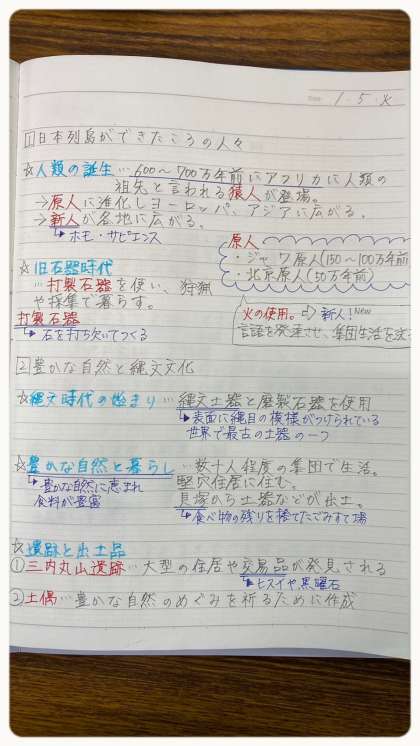 1・5・火
1 日本列島ができたころの人々
☆人類の誕生…600〜700万年前にアフリカに人類の
祖先と言われる猿人が登場。
→原人に進化しヨーロッパ、アジアに広がる。
→新人が各地に広がる。
↳ホモ・サピエンス
原人
・ジャワ原人(150〜100万年前
・北京原人(50万年前)
☆旧石器時代
…打製石器を使い、狩猟
や採集で暮らす。
打製石器
↳石を打ち欠いてつくる
火の使用。⇨新人!New
言語を発達させ、集団生活を
2 豊かな自然と縄文文化
☆縄文時代の始まり…縄文土器と磨製石器を使用
↳表面に縄目の模様がつけられている
世界で最古の土器の一つ
☆豊かな自然と暮らし…数十人程度の集団で生活。
↳豊かな自然に恵まれ
食料が豊富
竪穴住居に住む。
貝塚から土器などが出土。
↳食べ物の残りを捨てたごみすて場
☆遺跡と出土品
①三内丸山遺跡…大型の住居や交易品が発見される
↳ヒスイや黒曜石
②土偶…豊かな自然のめぐみを祈るために作成